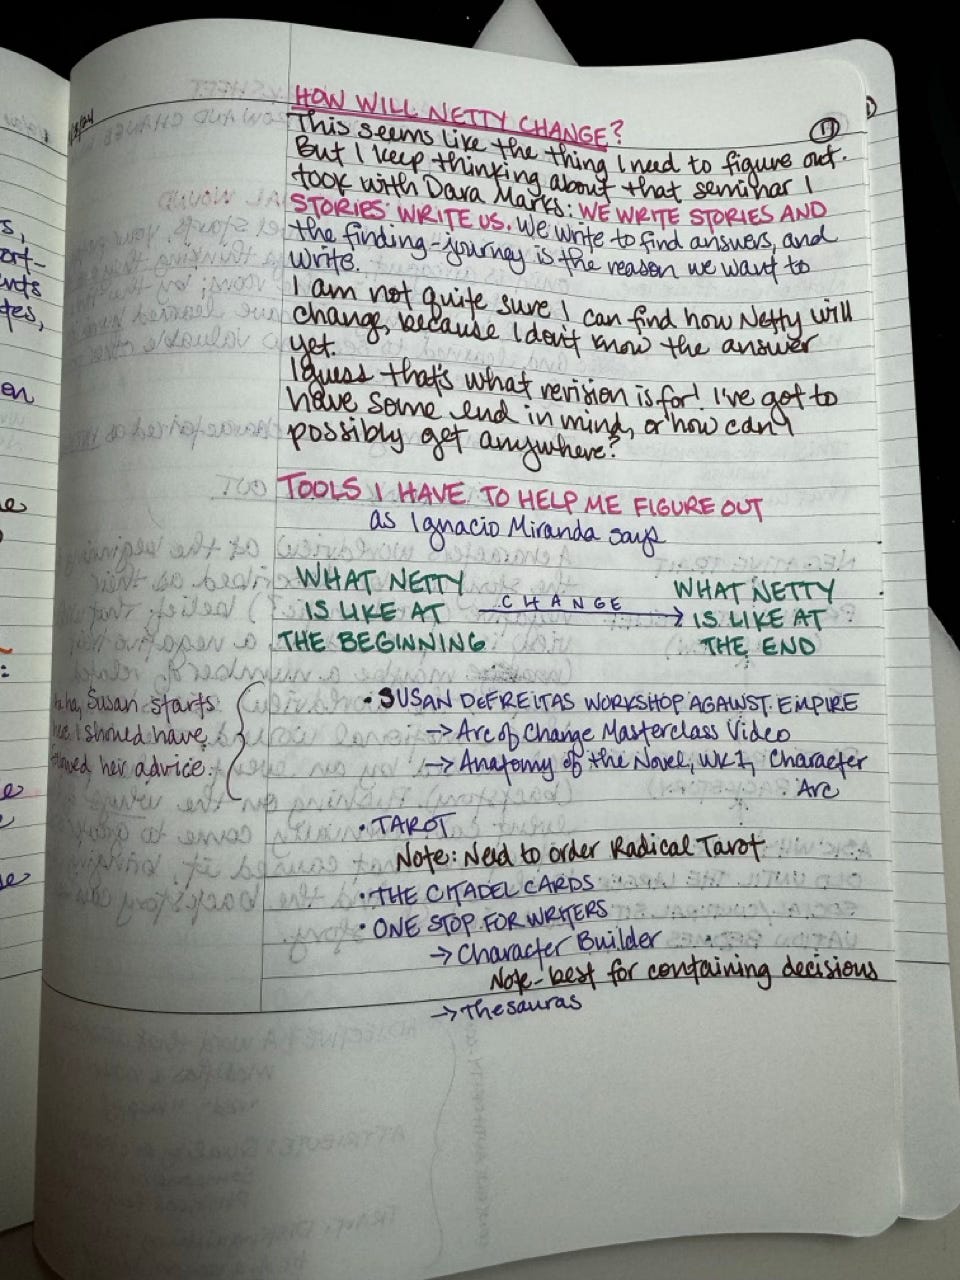 HOW WILL NETTY CHANGE?
17
This seems like the thing I need to figure out.
But I keep thinking about that seminar I
took with Dara Marks: WE WRITE STORIES AND
STORIES WRITE US. We write to find answers, and
the finding-journey is the reason we want to
write.
I am not quite sure I can find how Netty will
change, because I don't know the answer
yet.
I guess that's what revision is for! I've got to
have some end in mind, or how can I
possibly get anywhere?
TOOLS I HAVE TO HELP ME FIGURE OUT
as Ignacio Miranda says
WHAT NETTY
IS LIKE AT
THE BEGINNING
CHANGE
WHAT NETTY
IS LIKE AT
THE END
Susan starts
I should have
her advice.
• SUSAN DEFREITAS WORKSHOP AGAINST EMPIRE
→ Arc of Change Masterclass Video
→ Anatomy of the Novel, WK 1, Character
Arc
• TAROT
Note: Need to order Radical Tarot
• THE CITADEL CARDS
• ONE STOP FOR WRITERS
→ Character Builder
Note - best for containing decisions
→ Thesauras